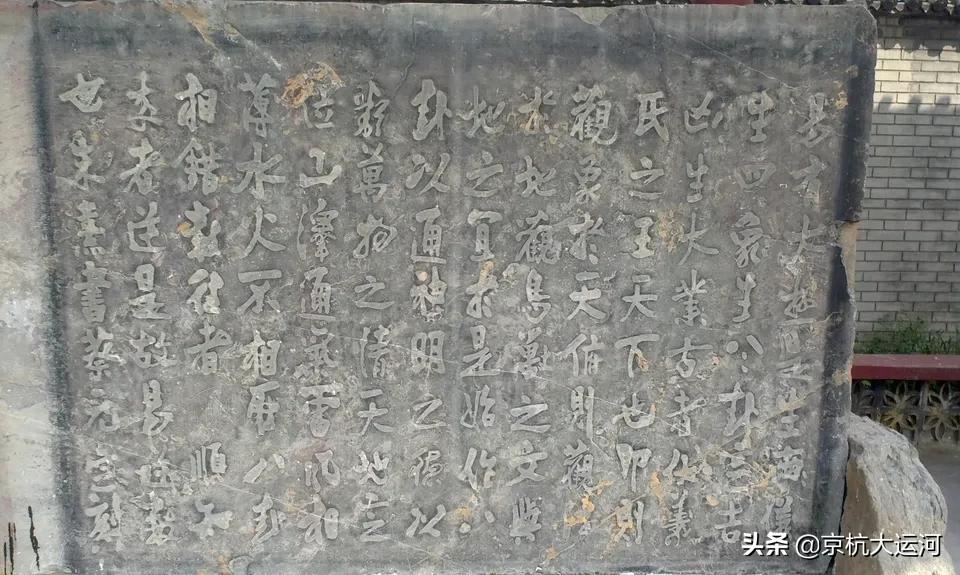 易有太極是生兩儀
生四象生八卦定吉
凶生大業古者伏羲
氏之王天下也仰則
觀象於天俯則觀法
於地觀鳥獸之文與
地之宜於是始作八
卦以通神明之德以
類萬物之情天地定
位山澤通氣雷風相
薄水火不相射八卦
相錯數往者順知
來者逆是故易逆數
也朱熹書蔡元定刻
头条 @京杭大运河